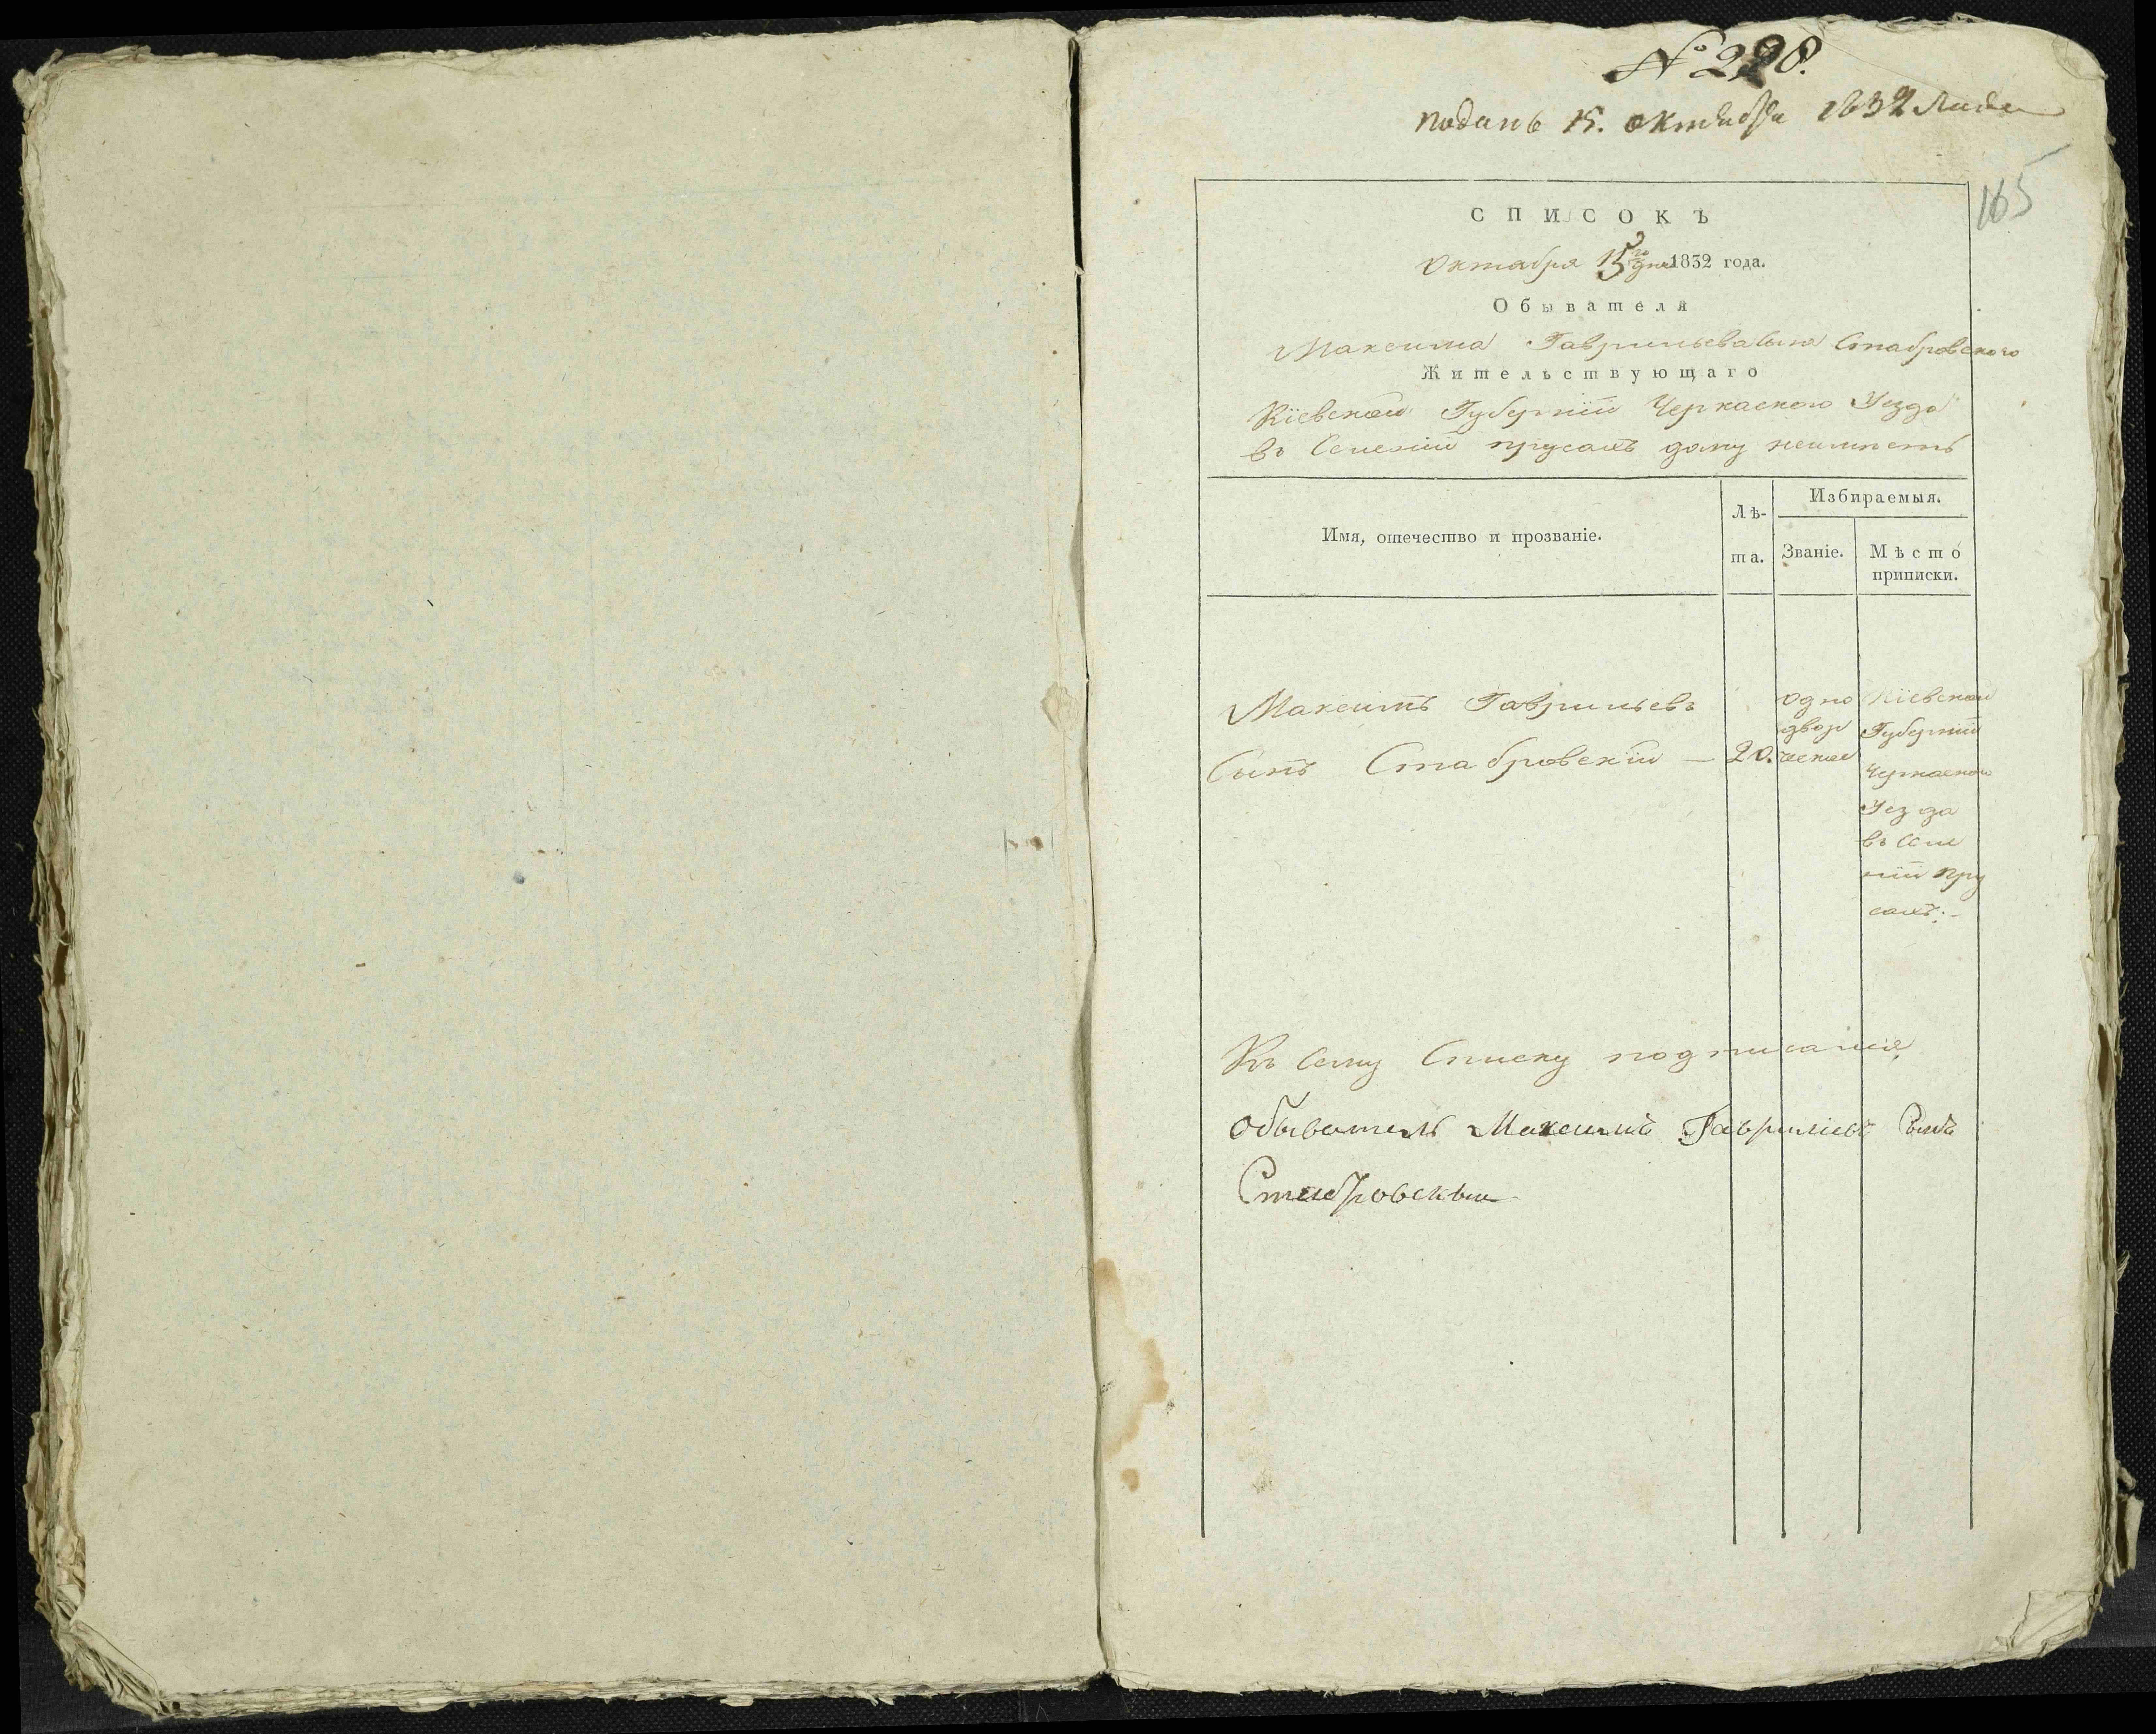 № 228.
поданъ 15. октября 1832 года
165
СПИСОКЪ
Октября 15го дня 1832 года.
Обывателя
Максима Гаврильева Сына Стабровского
Жительствующаго
Кіевской Губерніи Черкаского Уезда
въ Селеніи прусахъ дому неимѣетъ
Имя, отечество и прозваніе.
Лѣ-
та.
Избираемыя.
Званіе.
Мѣсто
приписки.
Максимъ Гаврильевъ
Сынъ Стабровскій — 20.
одно
двор
ческое
Кіевской
Губерніи
Черкаского
Уезда
въ Селе
ніи Пру
сахъ.-
Къ сему Списку подписался
обыватель Максимъ Гавриліевъ Сынъ
Стабровскый